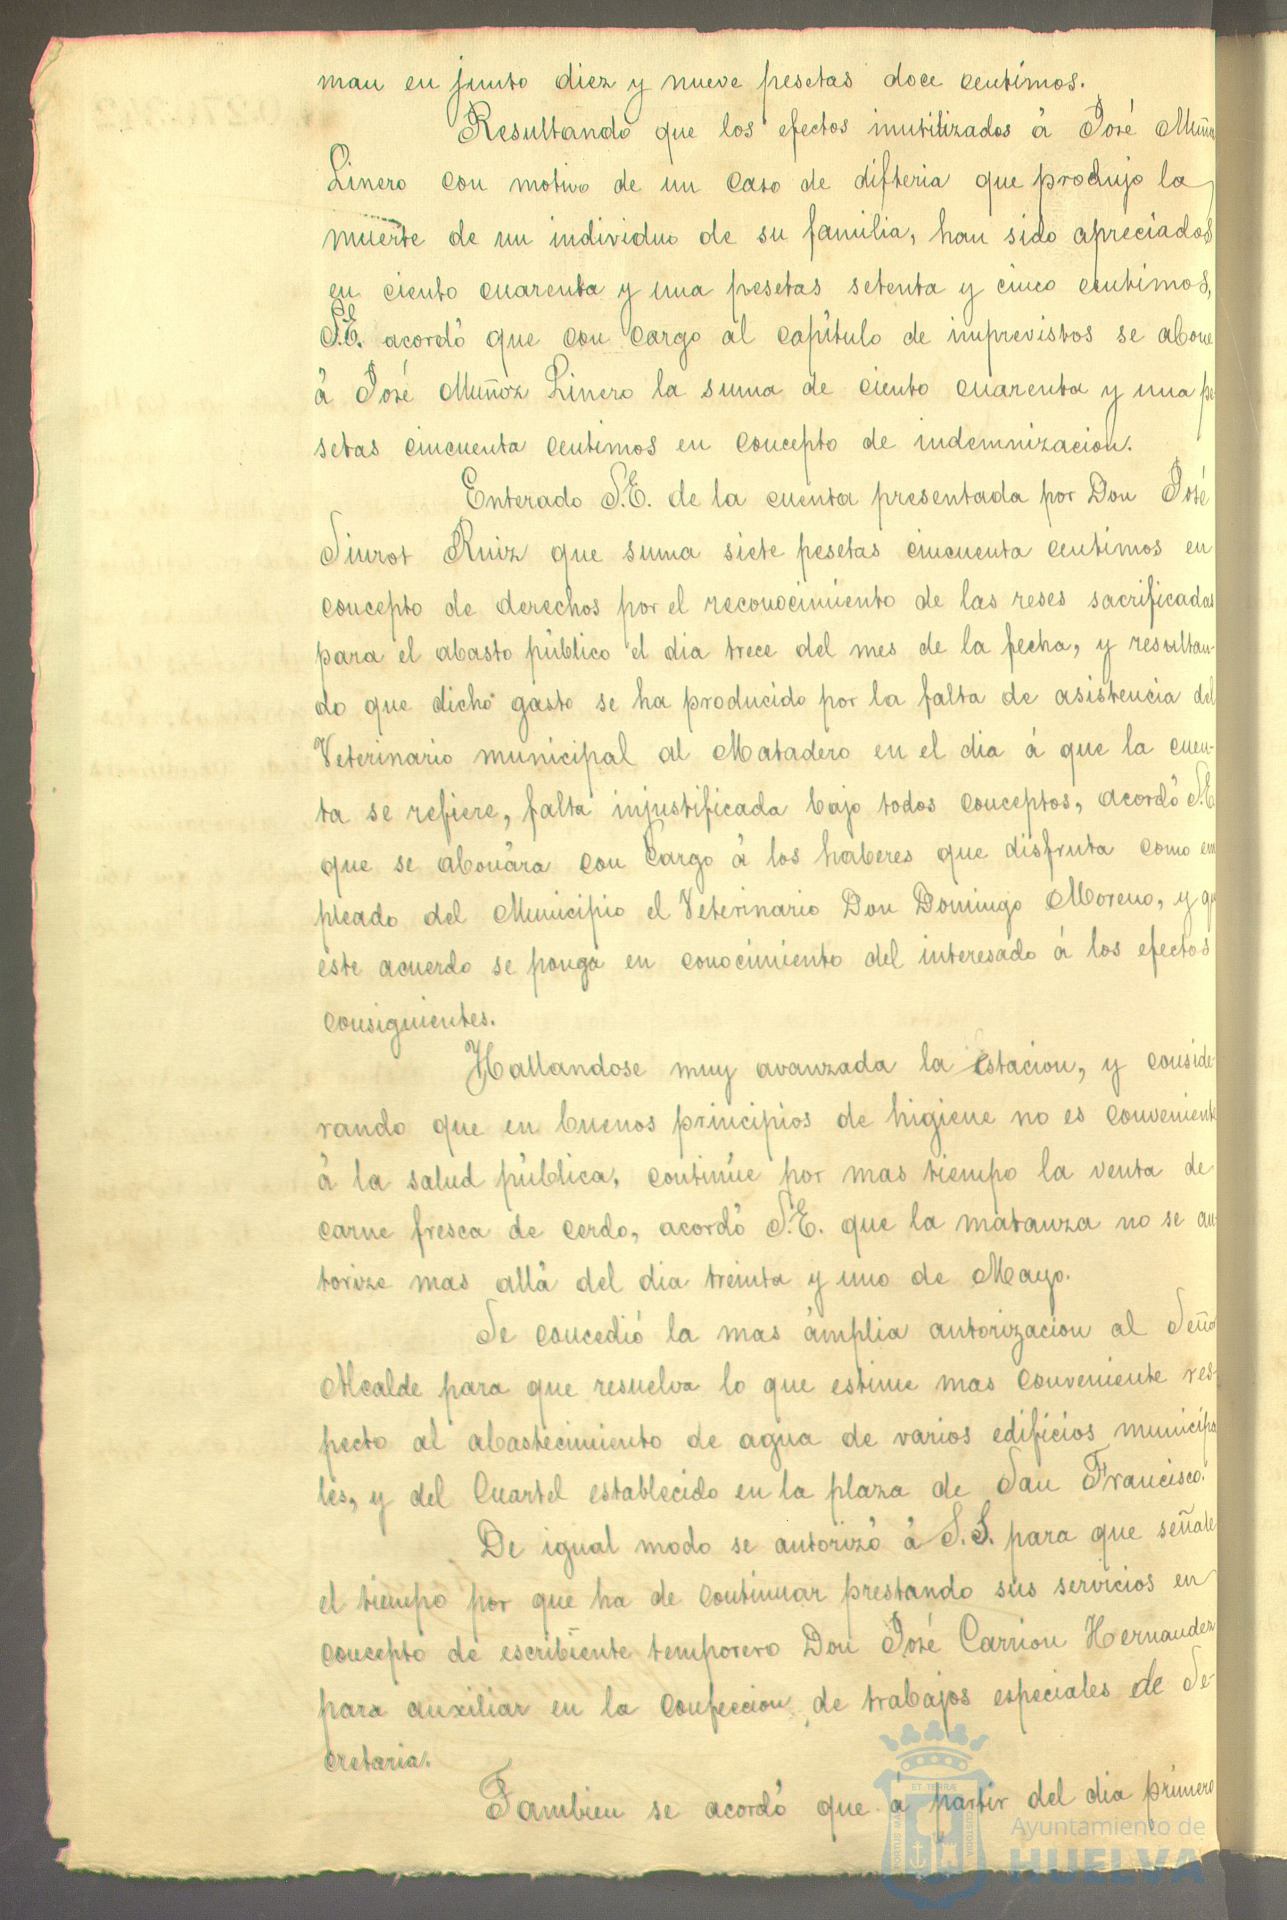 man en junto diez y nueve pesetas doce centimos.
Resultando que los efectos inutilizados á José Muño
Linero con motivo de un caso de difteria que produjo la
muerte de un individuo de su familia, han sido apreciados
en ciento cuarenta y una pesetas setenta y cinco centimos,
S.E. acordó que con cargo al capítulo de imprevistos se abone
á José Muñoz Linero la suma de ciento cuarenta y una pe
setas cincuenta centimos en concepto de indemnizacion.
Enterado S.E. de la cuenta presentada por Don José
Siurot Ruiz que suma siete pesetas cincuenta centimos en
concepto de derechos por el reconocimiento de las reses sacrificadas
para el abasto público el dia trece del mes de la fecha, y resultan-
do que dicho gasto se ha producido por la falta de asistencia del
Veterinario municipal al Matadero en el dia á que la cuen-
ta se refiere, falta injustificada bajo todos conceptos, acordó S.E
que se abonára con cargo á los haberes que disfruta como em
pleado del Municipio el Veterinario Don Domingo Moreno, y q
este acuerdo se ponga en conocimiento del interesado á los efectos
consiguientes.
Hallandose muy avanzada la estacion, y conside-
rando que en buenos principios de higiene no es convenient
á la salud pública, continúe por mas tiempo la venta de
carne fresca de cerdo, acordó S.E. que la matanza no se au
torize mas allá del dia treinta y uno de Mayo.
Se concedió la mas ámplia autorizacion al Seño
Alcalde para que resuelva lo que estime mas conveniente res-
pecto al abastecimiento de agua de varios edificios municipa
les, y del Cuartel establecido en la plaza de San Francisco.
De igual modo se autorizó á S.S. para que señale
el tiempo por que ha de continuar prestando sus servicios en
concepto de escribiente temporero Don José Carrion Hernandez
para auxiliar en la confeccion de trabajos especiales de Se-
cretaria.
Tambien se acordó que á partir del dia primero
Ayuntamiento de
HUELVA